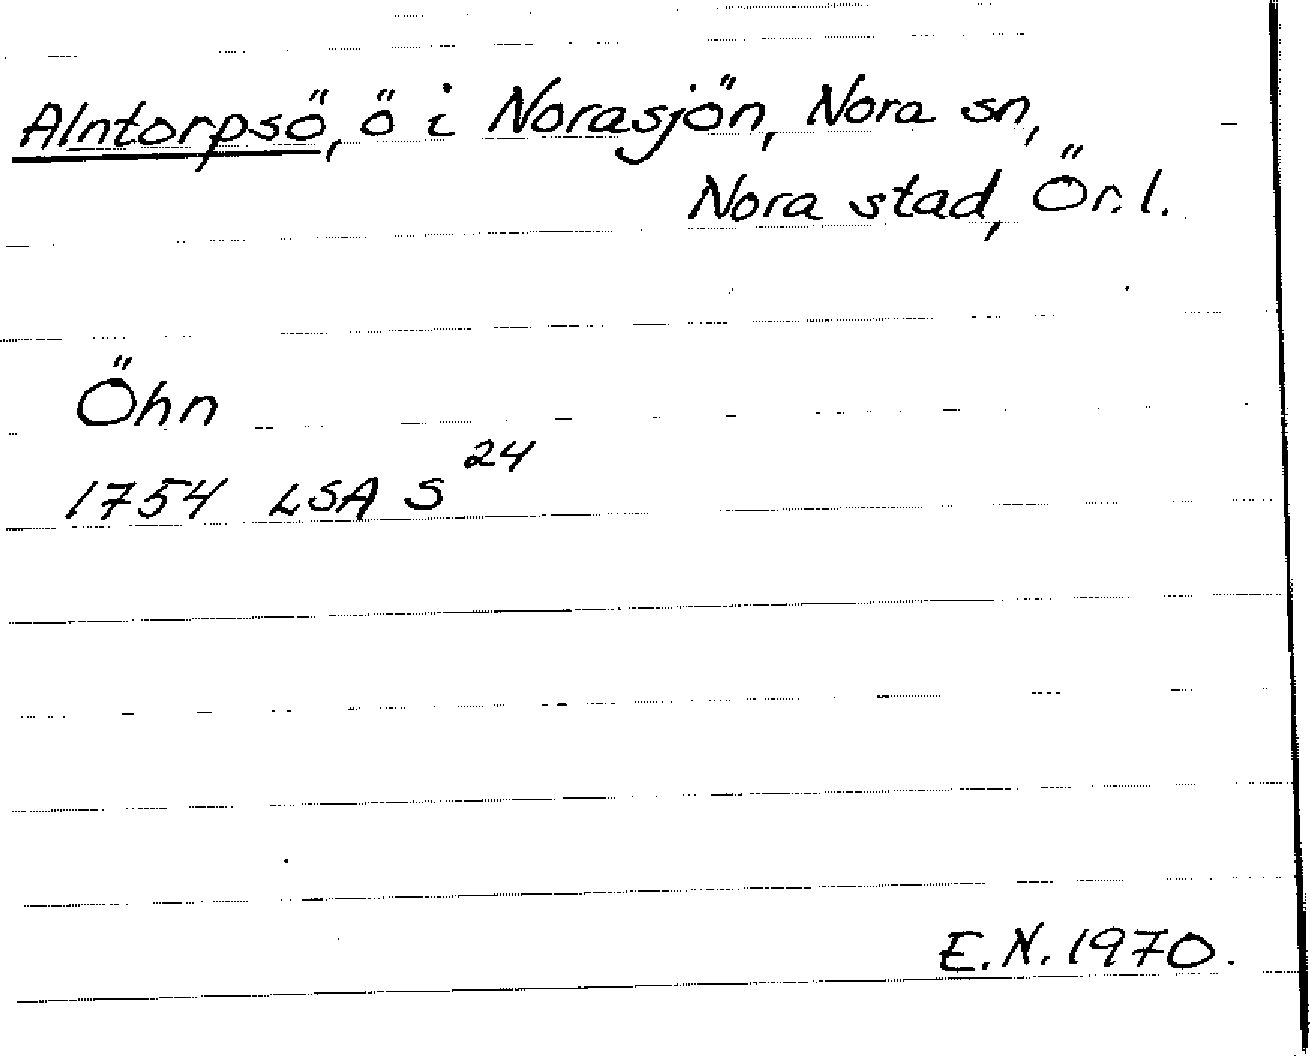 Alntorpsö, ö i Norasjön, Nora sn,
Nora stad, Ör.l.
Öhn
1754 LSA S 24
E.N. 1970.